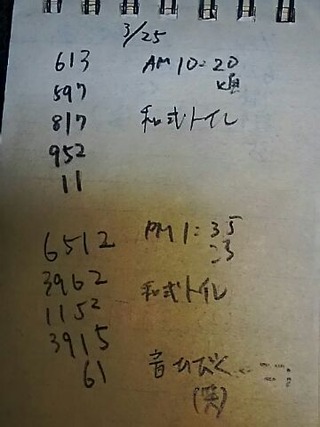 3/25
613 AM 10:20
597 頃
817 和式トイレ
952
11
6512 PM 1:35
3962
1152 和式トイレ
3915
61 音ひどく
(笑)